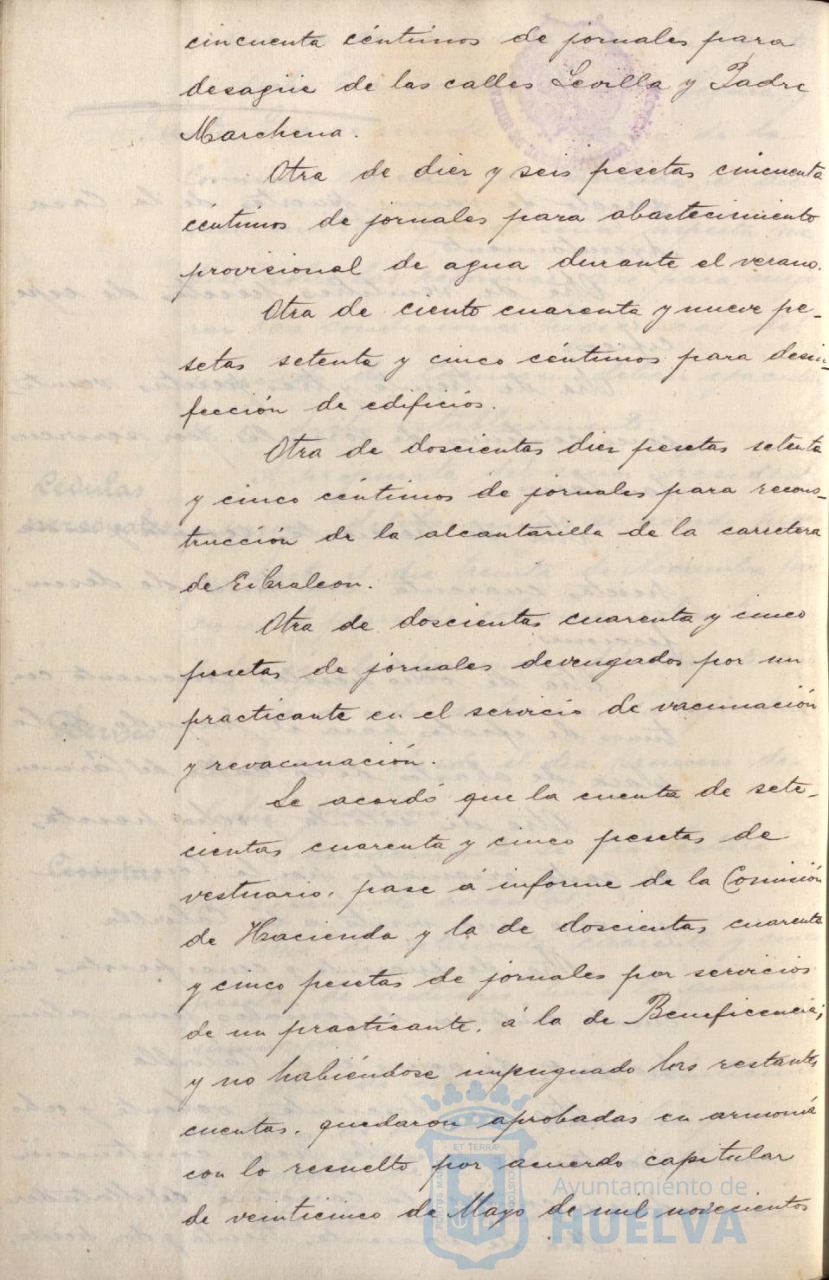 cincuenta céntimos de jornales para
desagüe de las calles Sevilla y Padre
Marchena.
Otra de diez y seis pesetas cincuenta
céntimos de jornales para abastecimiento
provisional de agua durante el verano.
Otra de ciento cuarenta y nueve pe-
setas setenta y cinco céntimos para desin-
fección de edificios.
Otra de doscientas diez pesetas setenta
y cinco céntimos de jornales para recons-
trucción de la alcantarilla de la carretera
de Gibraleon.
Otra de doscientas cuarenta y cinco
pesetas de jornales devengados por un
practicante en el servicio de vacunación
y revacunación.
Se acordó que la cuenta de sete-
cientas cuarenta y cinco pesetas de
vestuario, pase á informe de la Comisión
de Hacienda y la de doscientas cuarenta
y cinco pesetas de jornales por servicios
de un practicante, á la de Beneficencia;
y no habiéndose impugnado las restantes
cuentas, quedaron aprobadas en armonía
con lo resuelto por acuerdo capitular
de veinticinco de Mayo de mil novecientos
Ayuntamiento de
HUELVA